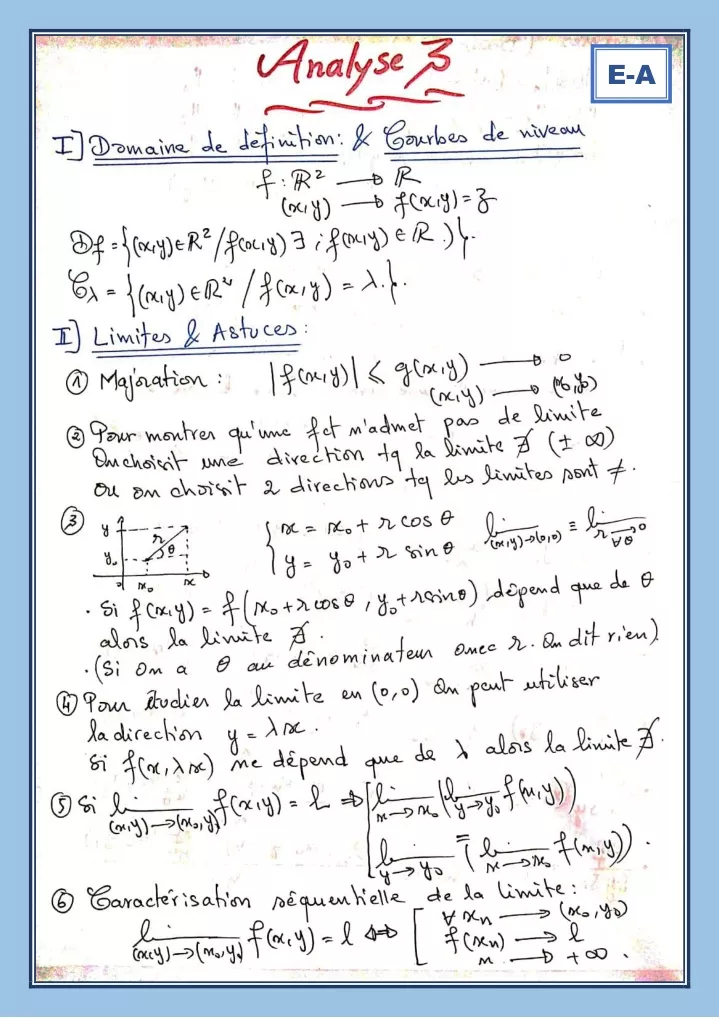 Analyse 3
E-A
I] Domaine de définition: & Courbes de niveau
f : ℝ² → ℝ
(x,y) → f(x,y) = z
Df = {(x,y) ∈ ℝ² / f(x,y) ∃ ; f(x,y) ∈ ℝ.)}.
Cλ = {(x,y) ∈ ℝ² / f(x,y) = λ.}.
II] Limites & Astuces :
① Majoration : |f(x,y)| ≤ g(x,y) → 0
(x,y) → (x₀,y₀)
② Pour montrer qu'une fct n'admet pas de limite
On choisit une direction tq la limite ∄ (± ∞)
ou on choisit 2 directions tq les limites sont ≠.
③ y y₀ r θ 0 x₀ x
{ x = x₀ + r cos θ
y = y₀ + r sin θ
lim (x,y)→(0,0) ≡ lim r→0 ∀θ
· Si f(x,y) = f(x₀ + r cos θ, y₀ + r sin θ) dépend que de θ
alors la limite ∄.
· (Si on a θ au dénominateur avec r. On dit rien)
④ Pour étudier la limite en (0,0) On peut utiliser
la direction y = λx.
Si f(x, λx) ne dépend que de λ alors la limite ∄.
⑤ Si lim (x,y)→(x₀,y₀) f(x,y) = l ⇒ [ lim x→x₀ (lim y→y₀ f(x,y))
=
lim y→y₀ (lim x→x₀ f(x,y)).
⑥ Caractérisation séquentielle de la limite :
lim (x,y)→(x₀,y₀) f(x,y) = l ⇔ [ ∀ xn → (x₀,y₀)
f(xn) → l
n → +∞.